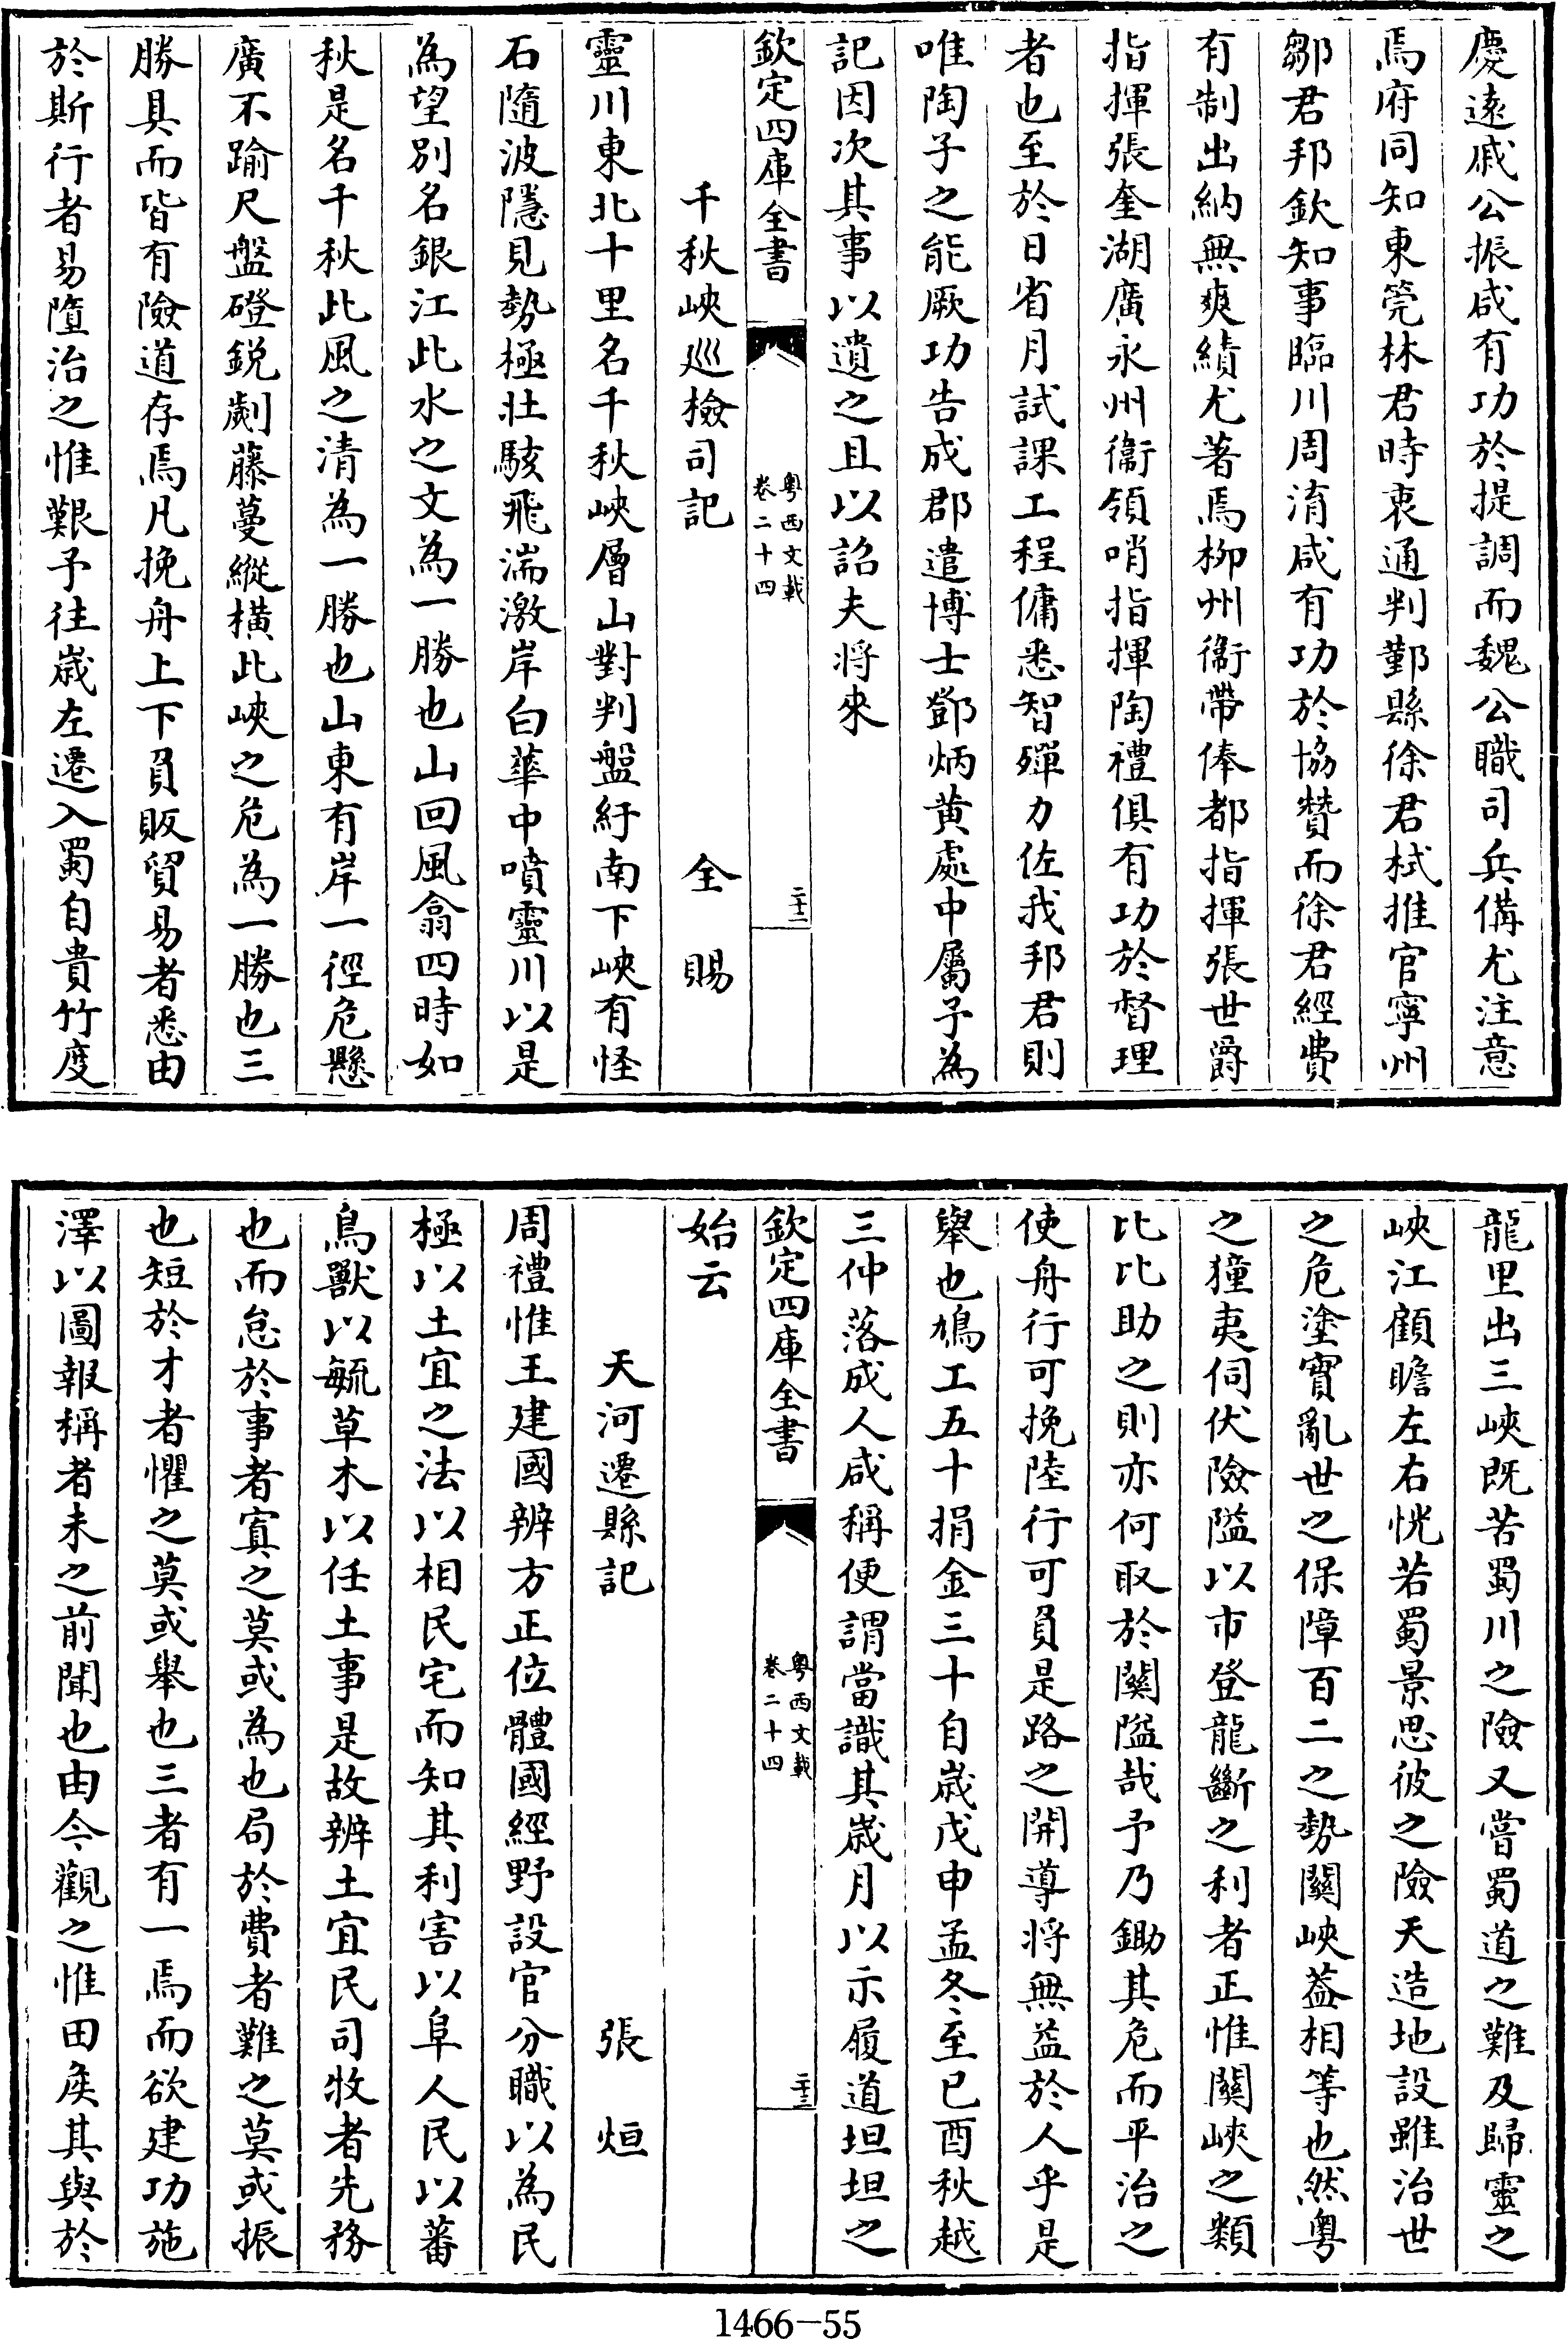 慶遠戚公振咸有功於提調而魏公職司兵備尤注意
焉府同知東筦林君時衷通判鄞縣徐君栻推官寧州
鄒君邦欽知事臨川周淯咸有功於協贊而徐君經費
有制出納無爽績尤著焉柳州衞帶俸都指揮張世爵
指揮張奎湖廣永州衞領哨指揮陶禮俱有功於督理
者也至於日省月試課工程傭悉智殫力佐我邦君則
唯陶子之能厥功告成郡遣博士鄧炳黄處中屬子為
記因次其事以遺之且以詔夫将來
欽定四庫全書
粤西文載
卷二十四
二十二
千秋峽廵檢司記
全賜
靈川東北十里名千秋峽層山對判盤紆南下峽有怪
石隨波隱見勢極壯駭飛湍激岸白華中噴靈川以是
為望別名銀江此水之文為一勝也山回風翕四時如
秋是名千秋此風之清為一勝也山東有岸一徑危懸
廣不踰尺盤磴鋭劌藤蔓縱橫此峽之危為一勝也三
勝具而皆有險道存焉凡挽舟上下負販貿易者悉由
於斯行者易墮治之惟艱予往歲左遷入蜀自貴竹度
龍里出三峽既苦蜀川之險又嘗蜀道之難及歸靈之
峽江顧瞻左右恍若蜀景思彼之險天造地設雖治世
之危塗實亂世之保障百二之勢關峽葢相等也然粤
之獞夷伺伏險隘以市登龍斷之利者正惟關峽之類
比比助之則亦何取於關隘哉予乃鋤其危而平治之
使舟行可挽陸行可負是路之開導将無益於人乎是
舉也鳩工五十捐金三十自歲戊申孟冬至己酉秋越
三仲落成人咸稱便謂當識其歲月以示履道坦坦之
欽定四庫全書
粤西文載
卷二十四
二十三
始云
天河遷縣記
張烜
周禮惟王建國辨方正位體國經野設官分職以為民
極以土宜之法以相民宅而知其利害以阜人民以蕃
鳥獸以毓草木以任土事是故辨土宜民司牧者先務
也而怠於事者寘之莫或為也局於費者難之莫或振
也短於才者懼之莫或舉也三者有一焉而欲建功施
澤以圖報稱者未之前聞也由今觀之惟田矦其與於
1466-55